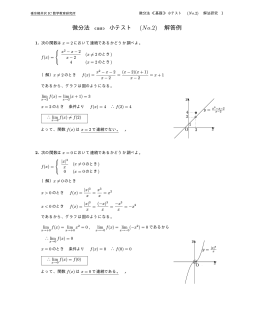 微分法 《基礎》 小テスト (No.2) 解答例
1. 次の関数は x = 2 において連続であるかどうか調べよ。
f(x) = { (x² − x − 2)/(x − 2) (x ≠ 2 のとき)
4 (x = 2 のとき)
［解］x ≠ 2 のとき f(x) = (x² − x − 2)/(x − 2) = (x − 2)(x + 1)/(x − 2) = x + 1
であるから、グラフは図のようになる。
∴ lim f(x) = lim (x + 1) = 3
x = 2 のとき 条件より f(x) = 4 ∴ f(2) = 4
∴ lim f(x) ≠ f(2)
よって、関数 f(x) は x = 2 で連続でない。
2. 次の関数は x = 0 において連続であるかどうか調べよ。
f(x) = { |x|³/x (x ≠ 0 のとき)
0 (x = 0 のとき)
［解］x ≠ 0 のとき
x > 0 のとき f(x) = |x|³/x = x³/x = x²
x < 0 のとき f(x) = |x|³/x = (−x)³/x = −x²
であるから、グラフは図のようになる。
lim f(x) = lim x² = 0 , lim f(x) = lim (−x²) = 0 であるから
∴ lim f(x) = 0
x = 0 のとき 条件より f(x) = 0 ∴ f(0) = 0
∴ lim f(x) = f(0)
よって、関数 f(x) は x = 0 で連続である。